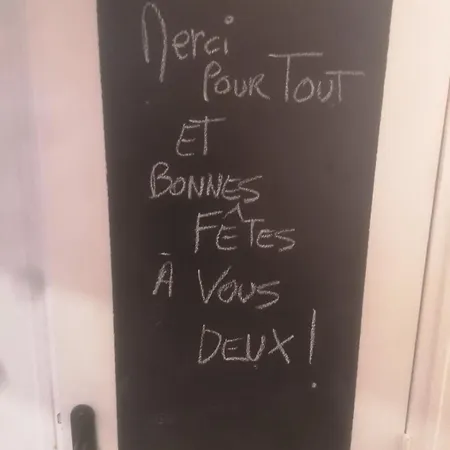 Merci
POUR TOUT
ET
BONNES
FÊTES
À VOUS
DEUX !